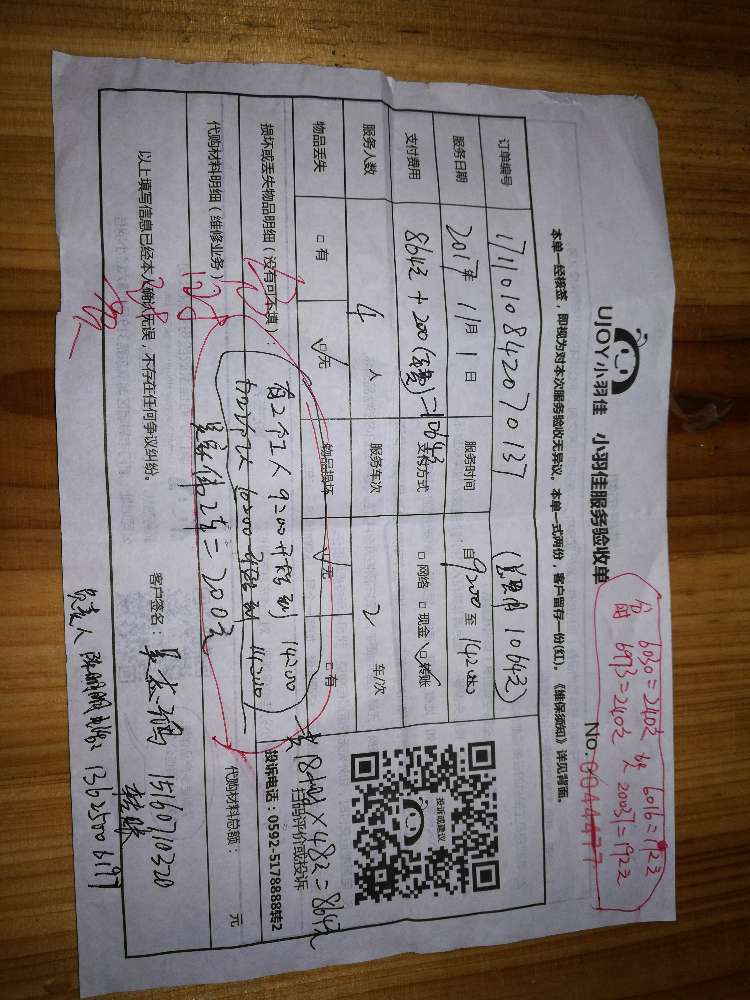 UJOY小羽佳 小羽佳服务验收单
No.0044477
本单一经核签，即视为对本次服务验收无异议。本单一式两份，客户留存一份(红)。《维保须知》详见背面。
6030=240元 6016=192元
6973=240元 20031=192元
订单编号 1711010842070137 (总费用1064元)
服务日期 2017年 11月 1日 服务时间 自9:00至14:00
支付费用 864元+200 =1064元 支付方式 □网络 □现金 □转账
服务人数 4 人 服务车次 2 车/次
物品丢失 □有 □无 物品损坏 □无 □有
投诉或建议
扫码评价或投诉
投诉电话：0592-5178888转2
损坏或丢失物品明细（没有可不填）：
有2个工人9:00开始到14:00
10:00开始到14:00
共18小时×48元=864元
=200元
代购材料明细（维修业务）：
代购材料总额： 元
以上填写信息已经本人确认无误，不存在任何争议纠纷。
客户签名： 15160710320
转账
负责人 13625001697